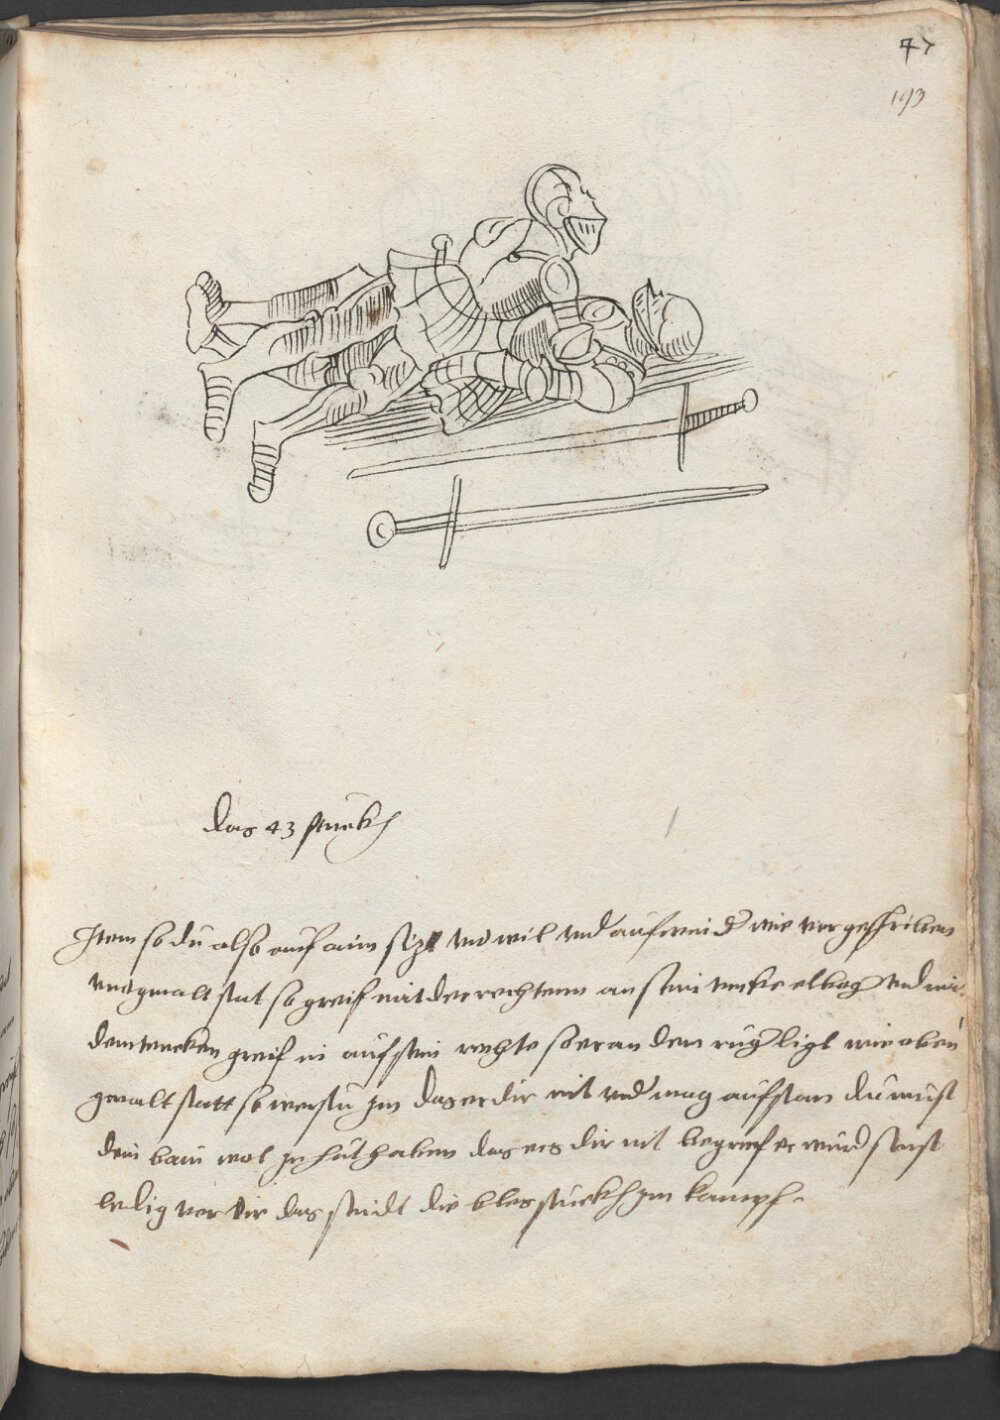 47
193
das 43 stuckh
Item so du also auf aim sizt und wil und auf wind wie vor geschriben
und gmalt stat so greif mit der rechtenn an sein tencke elbog und mit
dem tencken greif im auf sein rechte so er an dem rug ligt wie oben
gemalt statt so werstu im das er dir nit und mag aufstan du must
dein bain wol in hut haben das ers dir nit begreif er wurd sunst
ledig vor dir das seindt die bles stuckh zum kampf